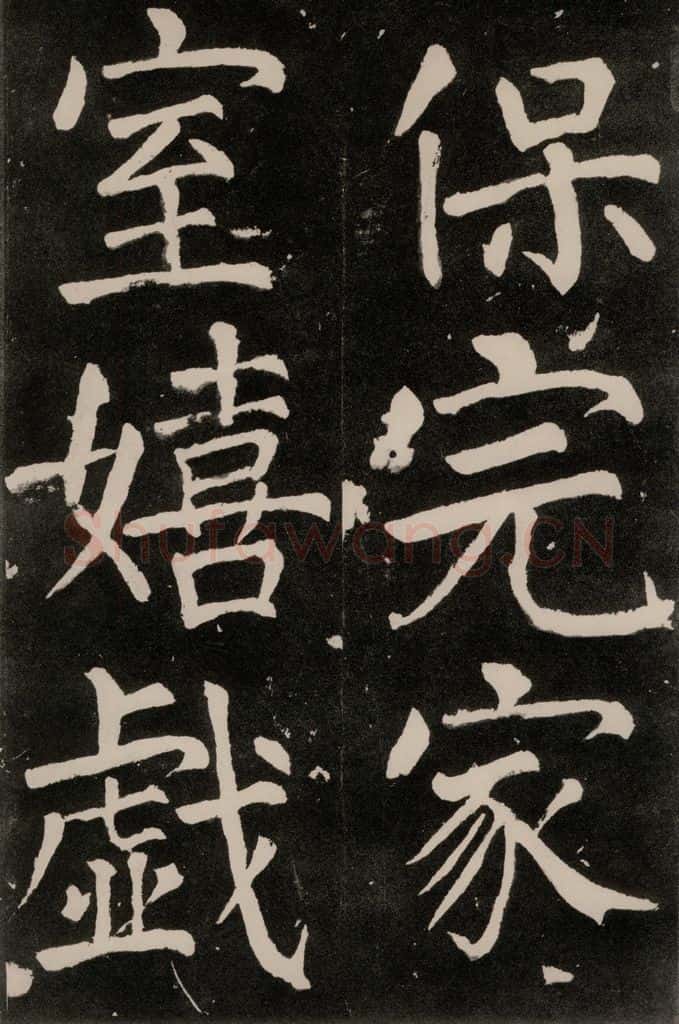 保完家
室嬉戱
Shufawang.CN